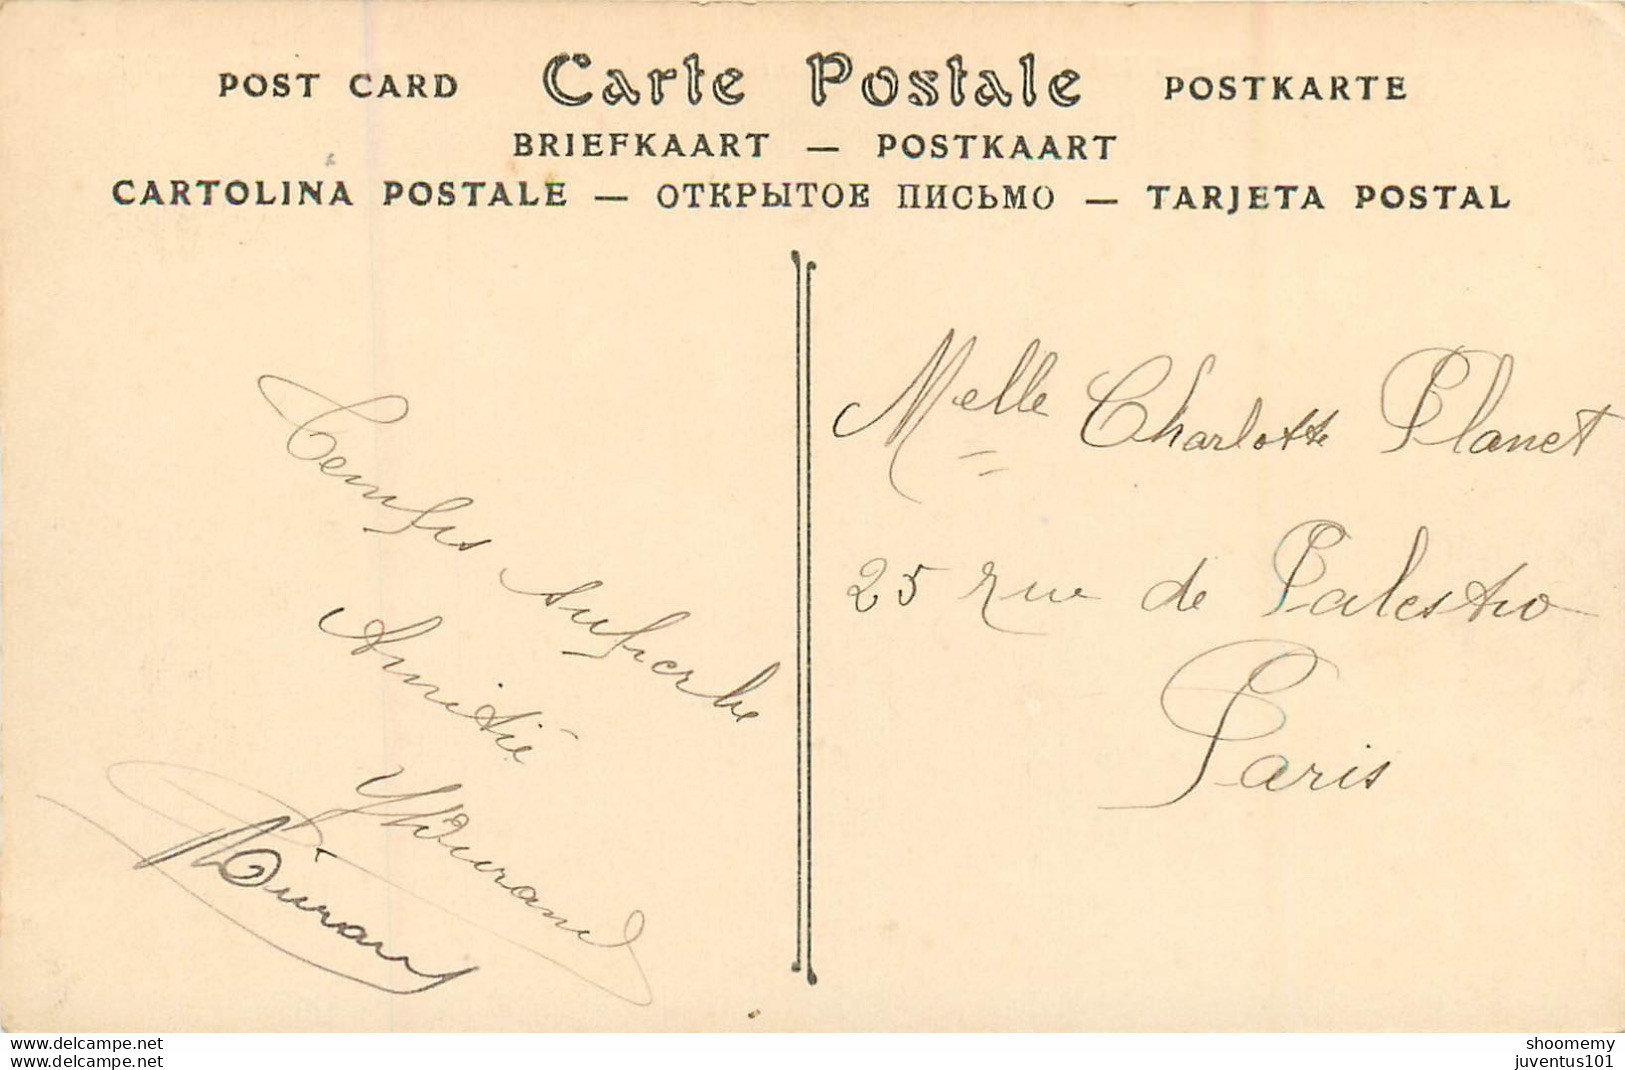 POST CARD Carte Postale POSTKARTE
BRIEFKAART — POSTKAART
CARTOLINA POSTALE — ОТКРЫТОЕ ПИСЬМО — TARJETA POSTAL
Temps superbe
Amitié
Durand
Durand
Melle Charlotte Planet
25 rue de Palestro
Paris
www.delcampe.net
www.delcampe.net
shoomemy
juventus101